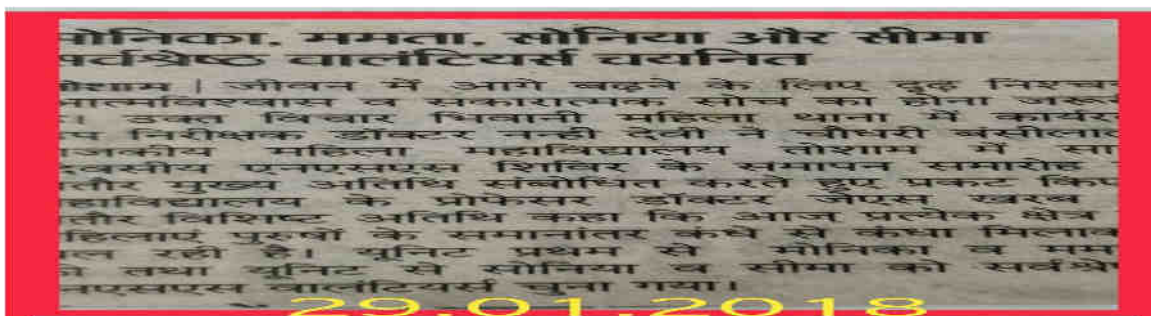 मोनिका, ममता, सोनिया और सीमा
सर्वश्रेष्ठ वालंटियर्स चयनित
तोशाम | जीवन में आगे बढ़ने के लिए दृढ़ निश्चय
आत्मविश्वास व सकारात्मक सोच का होना जरूरी
है। उक्त विचार भिवानी महिला थाना में कार्यरत
उप निरीक्षक डॉक्टर नन्ही देवी ने चौधरी बंसीलाल
राजकीय महिला महाविद्यालय तोशाम में सात
दिवसीय एनएसएस शिविर के समापन समारोह
बतौर मुख्य अतिथि संबोधित करते हुए प्रकट किए
महाविद्यालय के प्रोफेसर डॉक्टर जेएस खरब
बतौर विशिष्ट अतिथि कहा कि आज प्रत्येक क्षेत्र
महिलाएं पुरुषों के समानांतर कंधे से कंधा मिलाकर
चल रही है। यूनिट प्रथम से मोनिका व ममता
को तथा यूनिट से सोनिया व सीमा को सर्वश्रेष्ठ
एनएसएस वालंटियर्स चुना गया।
29.01.2018